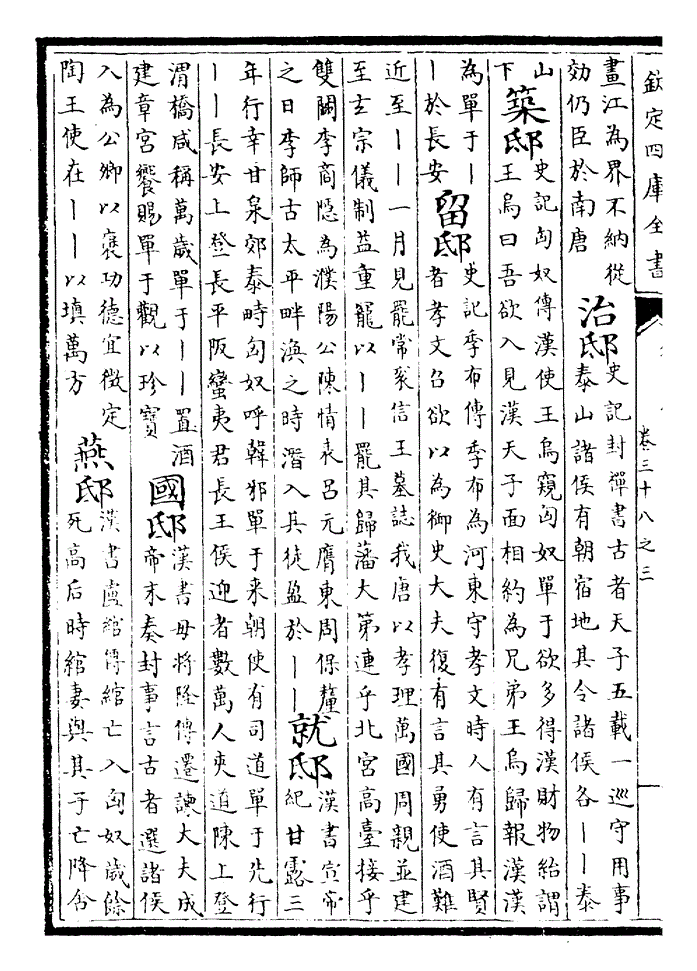 欽定四庫全書
卷三十八之三
一
畫江為界不納從
効仍臣於南唐
治邸
史記封禪書古者天子五載一巡守用事
泰山諸侯有朝宿地其令諸侯各丨丨泰
山
下
築邸
史記匈奴傳漢使王烏窺匈奴單于欲多得漢財物紿謂
王烏曰吾欲入見漢天子面相約為兄弟王烏歸報漢漢
為單于丨
丨於長安
留邸
史記季布傳季布為河東守孝文時人有言其賢
者孝文召欲以為御史大夫復有言其勇使酒難
近至丨丨一月見罷常衮信王墓誌我唐以孝理萬國周親並建
至玄宗儀制益重寵以丨丨罷其歸藩大第連乎北宮高臺接乎
雙闕李商隱為濮陽公陳情表呂元膺東周保釐
之日李師古太平畔渙之時潛入其徒盈於丨丨
就邸
漢書宣帝
紀甘露三
年行幸甘泉郊泰畤匈奴呼韓邪單于来朝使有司道單于先行
丨丨長安上登長平阪蠻夷君長王侯迎者數萬人夾道陳上登
渭橋咸稱萬歲單于丨丨置酒
建章宮饗賜單于觀以珍寶
國邸
漢書毋將隆傳遷諫大夫成
帝末奏封事言古者選諸侯
入為公卿以褒功德宜徵定
陶王使在丨丨以填萬方
燕邸
漢書盧綰傳綰亡入匈奴歲餘
死高后時綰妻與其子亡降會